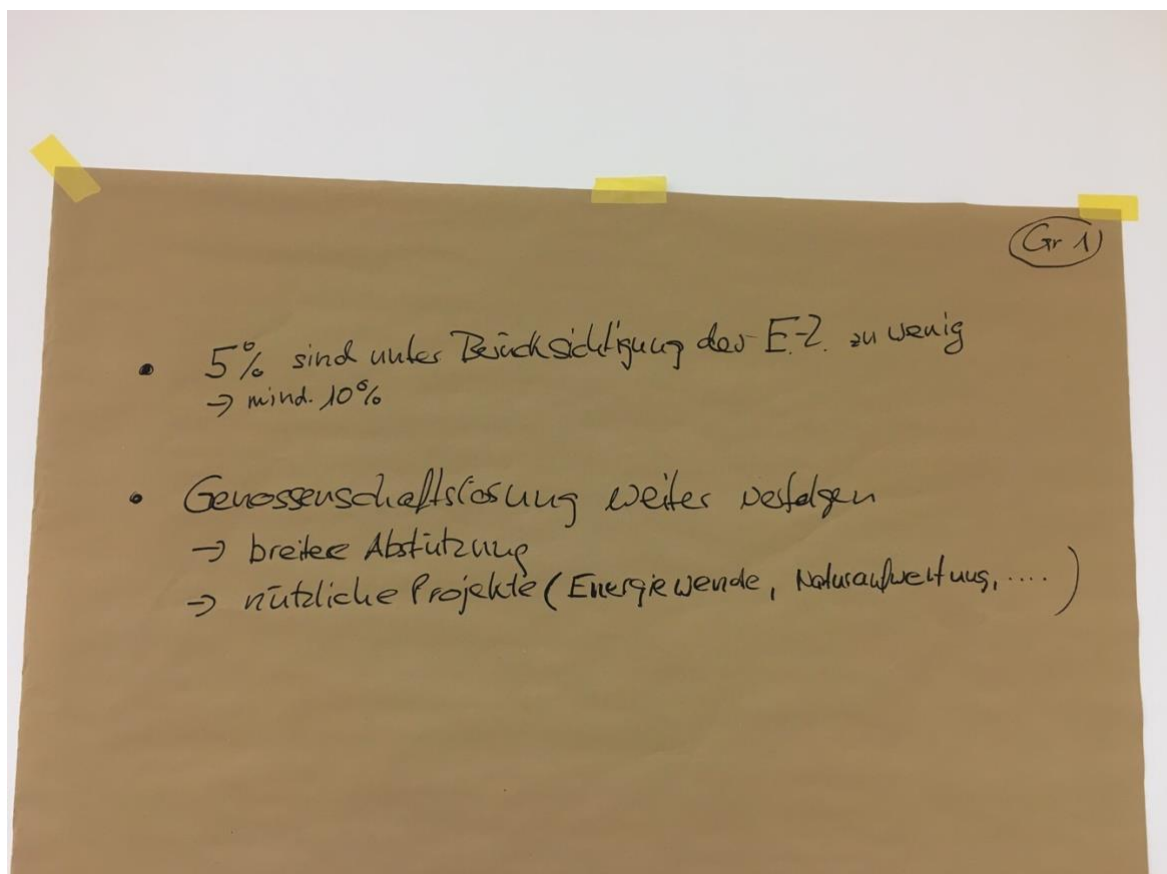 Gr 1
• 5% sind unter Berücksichtigung der E.-Z. zu wenig
→ mind. 10%
• Genossenschaftslösung weiter verfolgen
→ breitere Abstützung
→ nützliche Projekte (Energiewende, Naturaufwertung, ....)